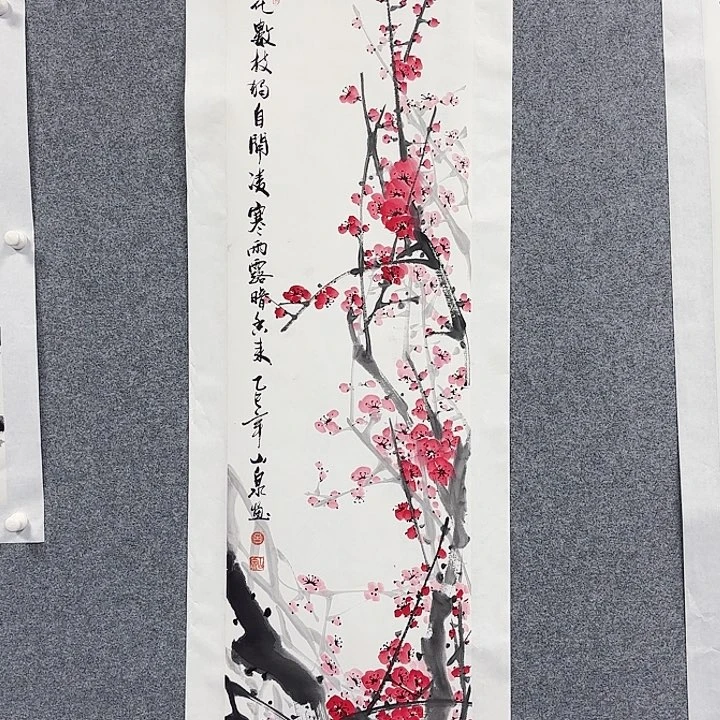 花數枝獨自開凌寒雨露暗香來乙巳年山泉